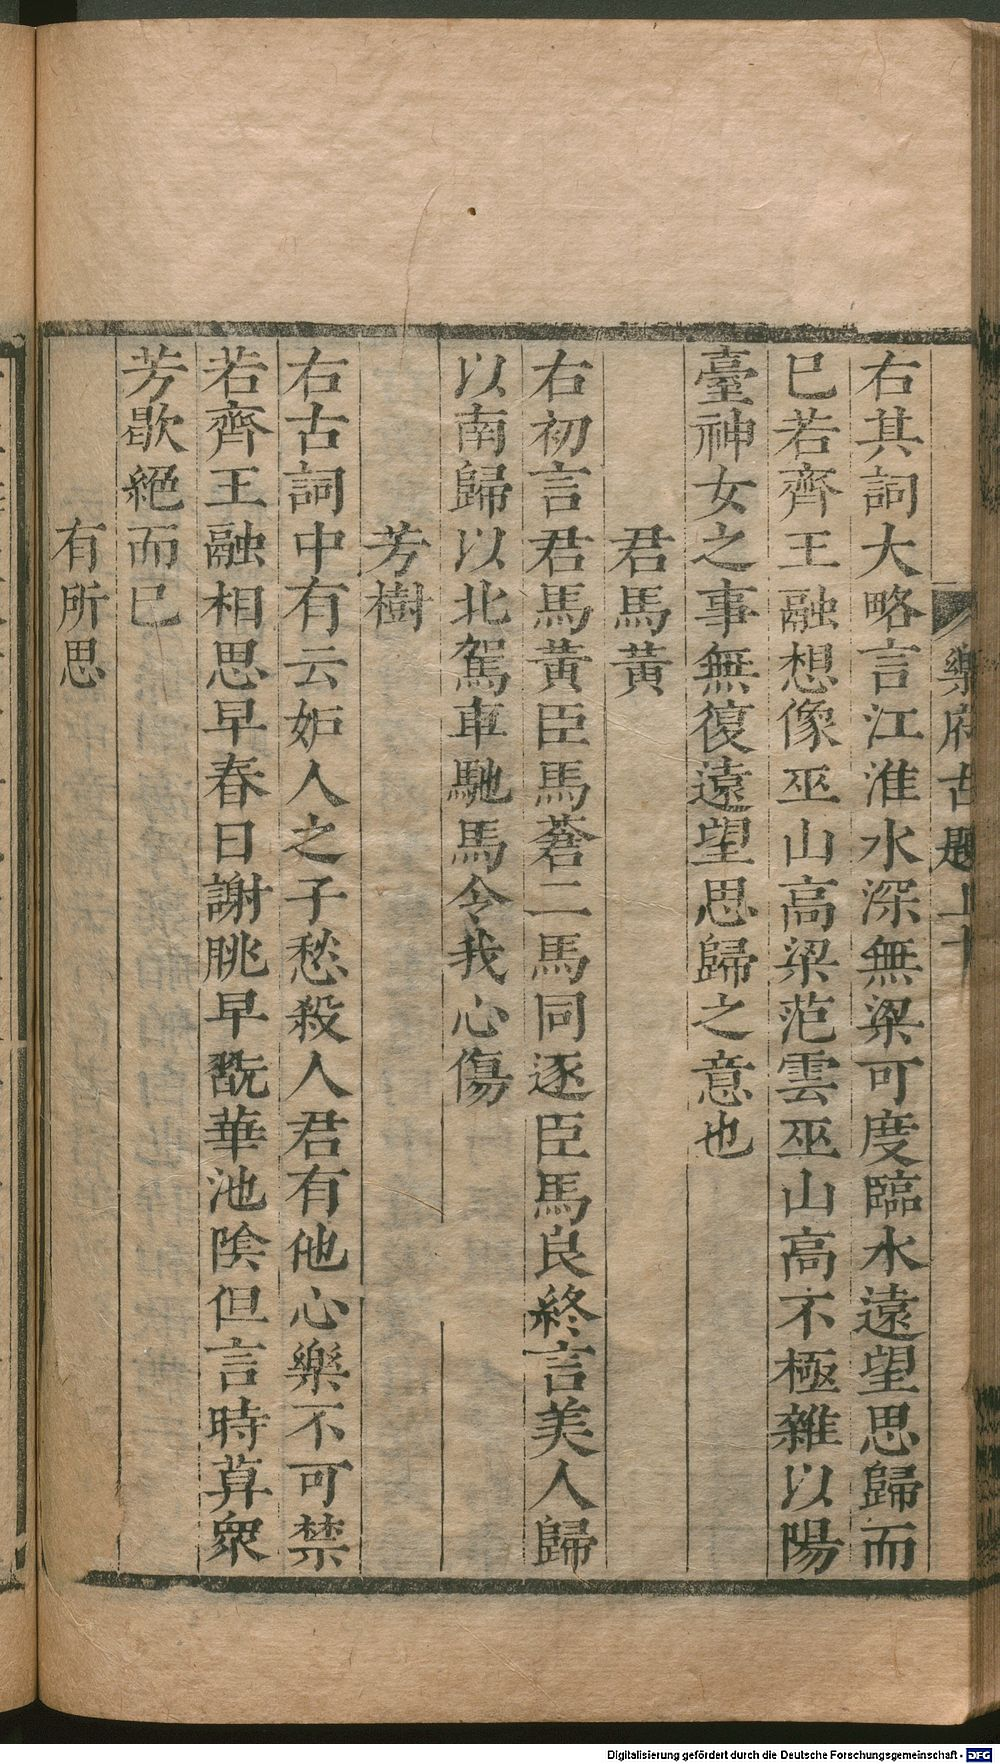 樂府古題上
右其詞大略言江淮水深無梁可度臨水遠望思歸而
已若齊王融想像巫山高梁范雲巫山高不極雜以陽
臺神女之事無復遠望思歸之意也
君馬黃
右初言君馬黃臣馬蒼二馬同逐臣馬良終言美人歸
以南歸以北駕車馳馬令我心傷
芳樹
右古詞中有云妬人之子愁殺人君有他心樂不可禁
若齊王融相思早春日謝朓早翫華池陰但言時暮衆
芳歇絕而已
有所思
Digitalisierung gefördert durch die Deutsche Forschungsgemeinschaft - DFG